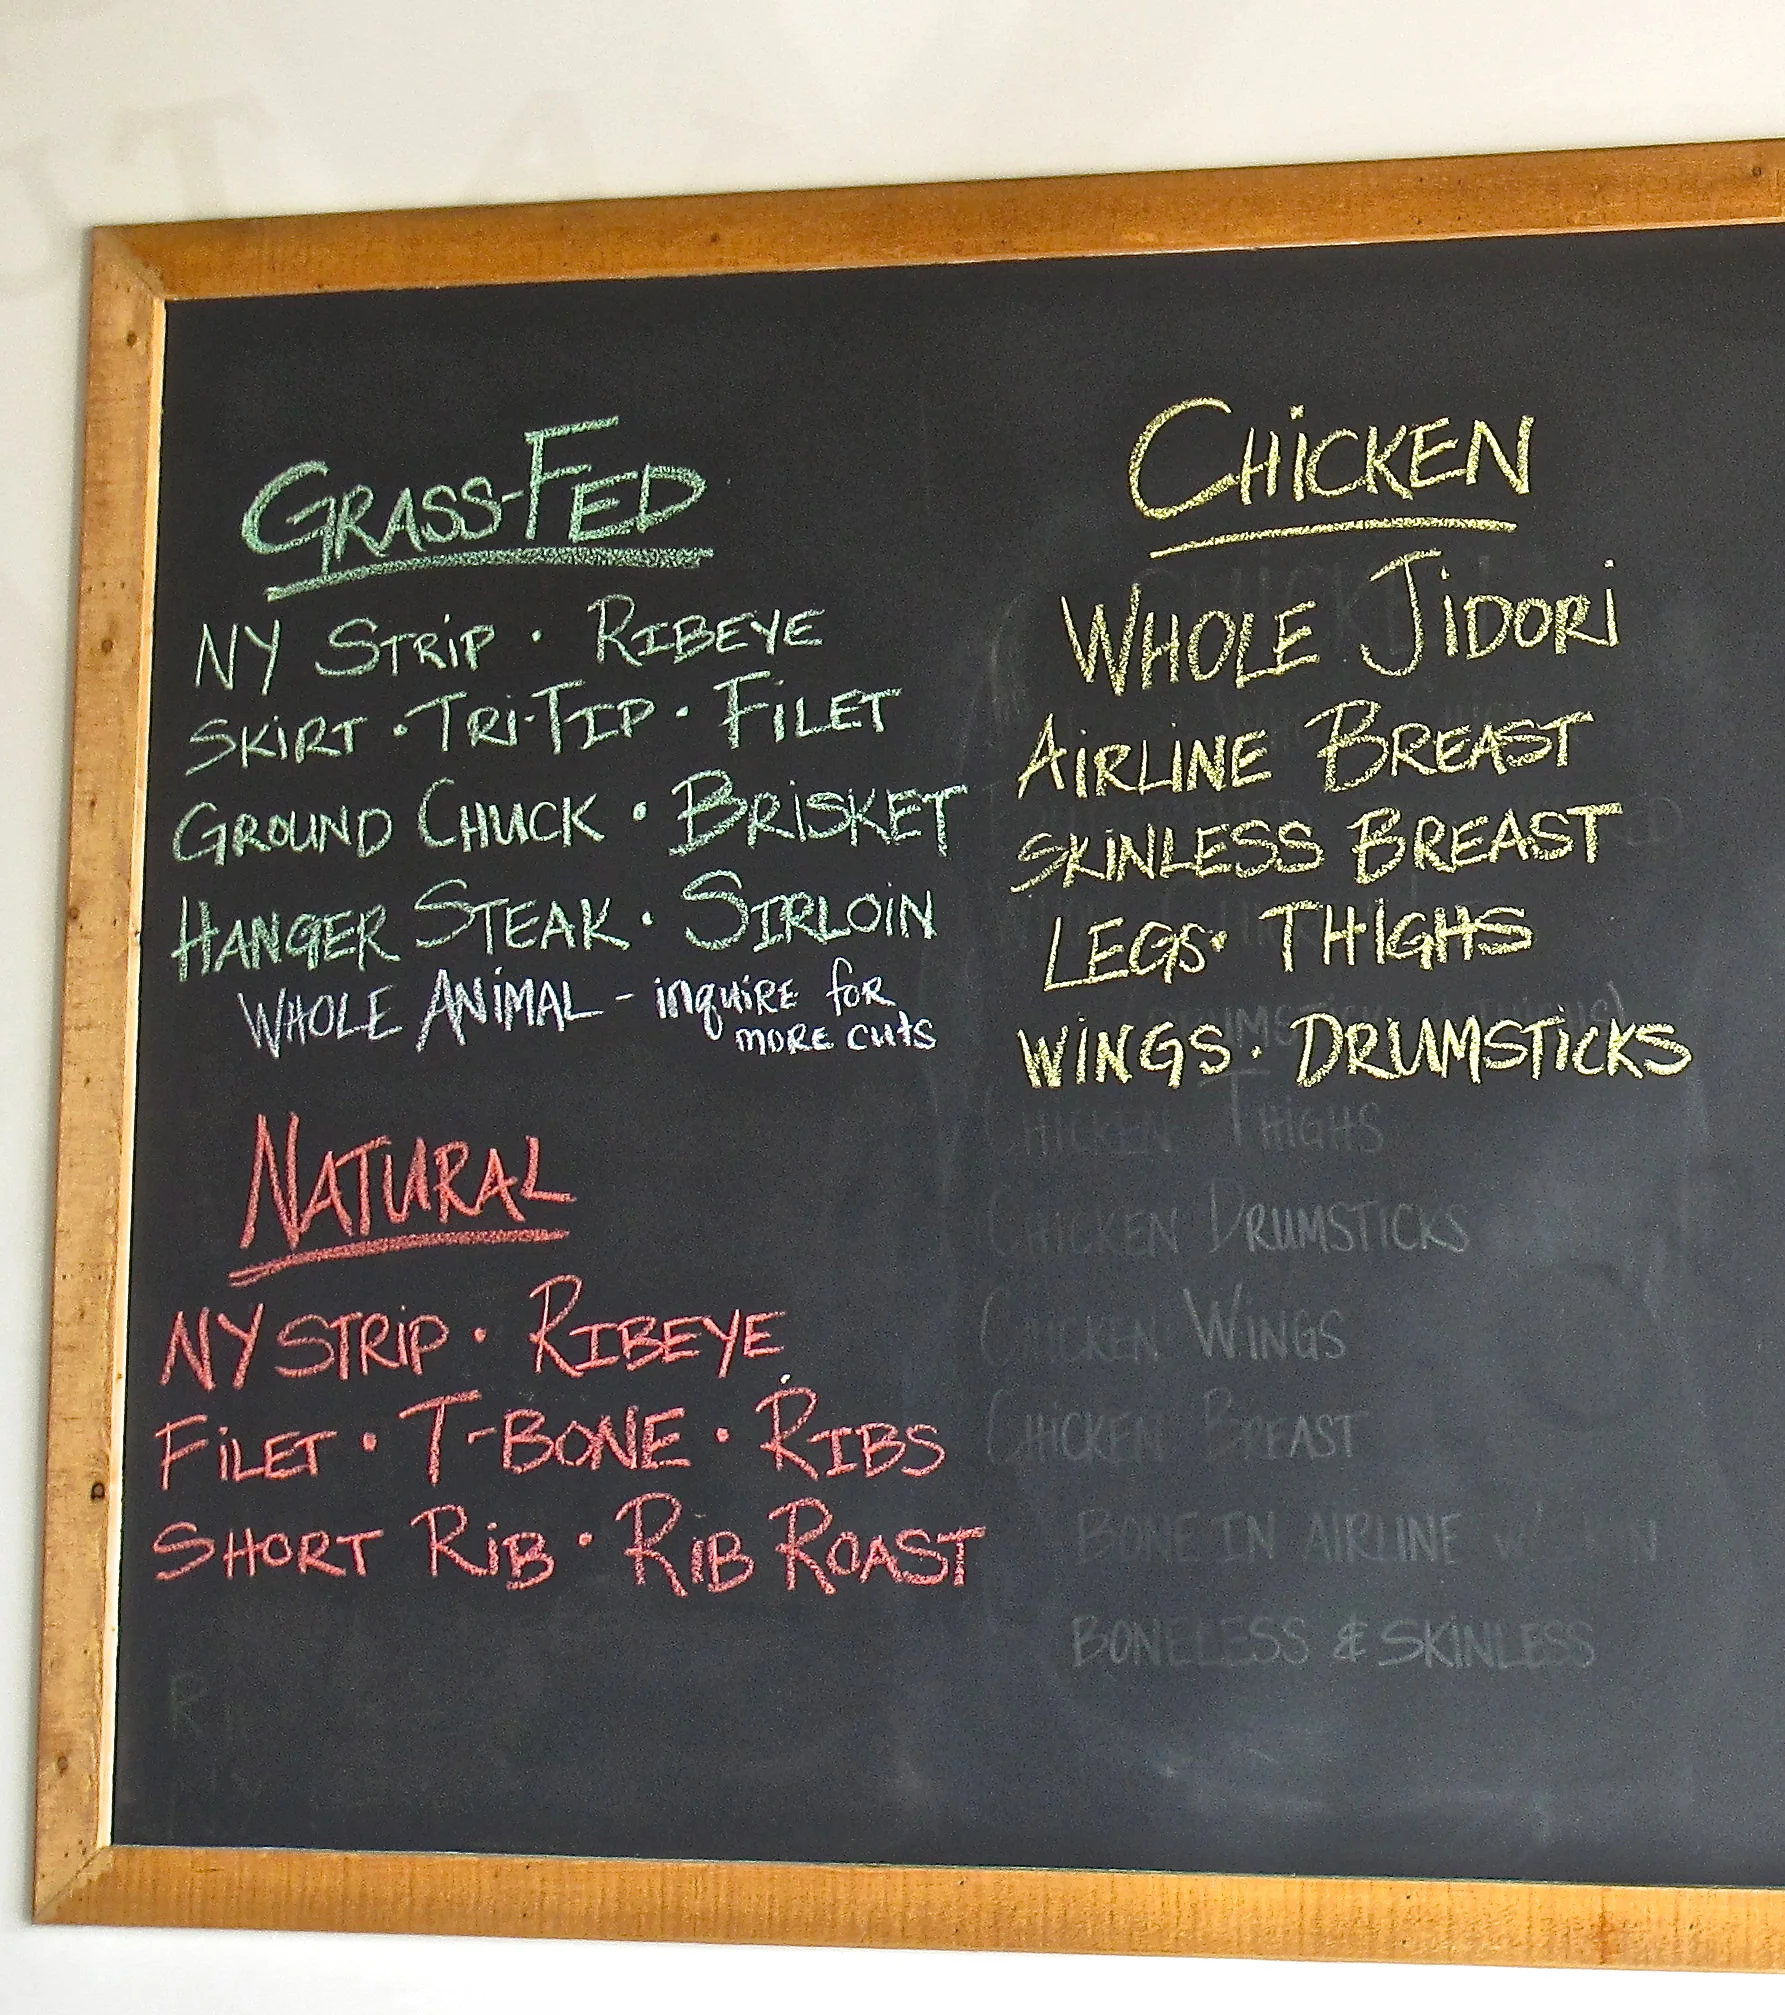 GRASS-FED
NY STRIP · RIBEYE
SKIRT · TRI-TIP · FILET
GROUND CHUCK · BRISKET
HANGER STEAK · SIRLOIN
WHOLE ANIMAL - inquire for
more cuts
NATURAL
NY STRIP · RIBEYE
FILET · T-BONE · RIBS
SHORT RIB · RIB ROAST
CHICKEN
WHOLE JIDORI
AIRLINE BREAST
SKINLESS BREAST
LEGS · THIGHS
WINGS · DRUMSTICKS
CHICKEN THIGHS
CHICKEN DRUMSTICKS
CHICKEN WINGS
CHICKEN BREAST
BONE IN AIRLINE
BONELESS & SKINLESS